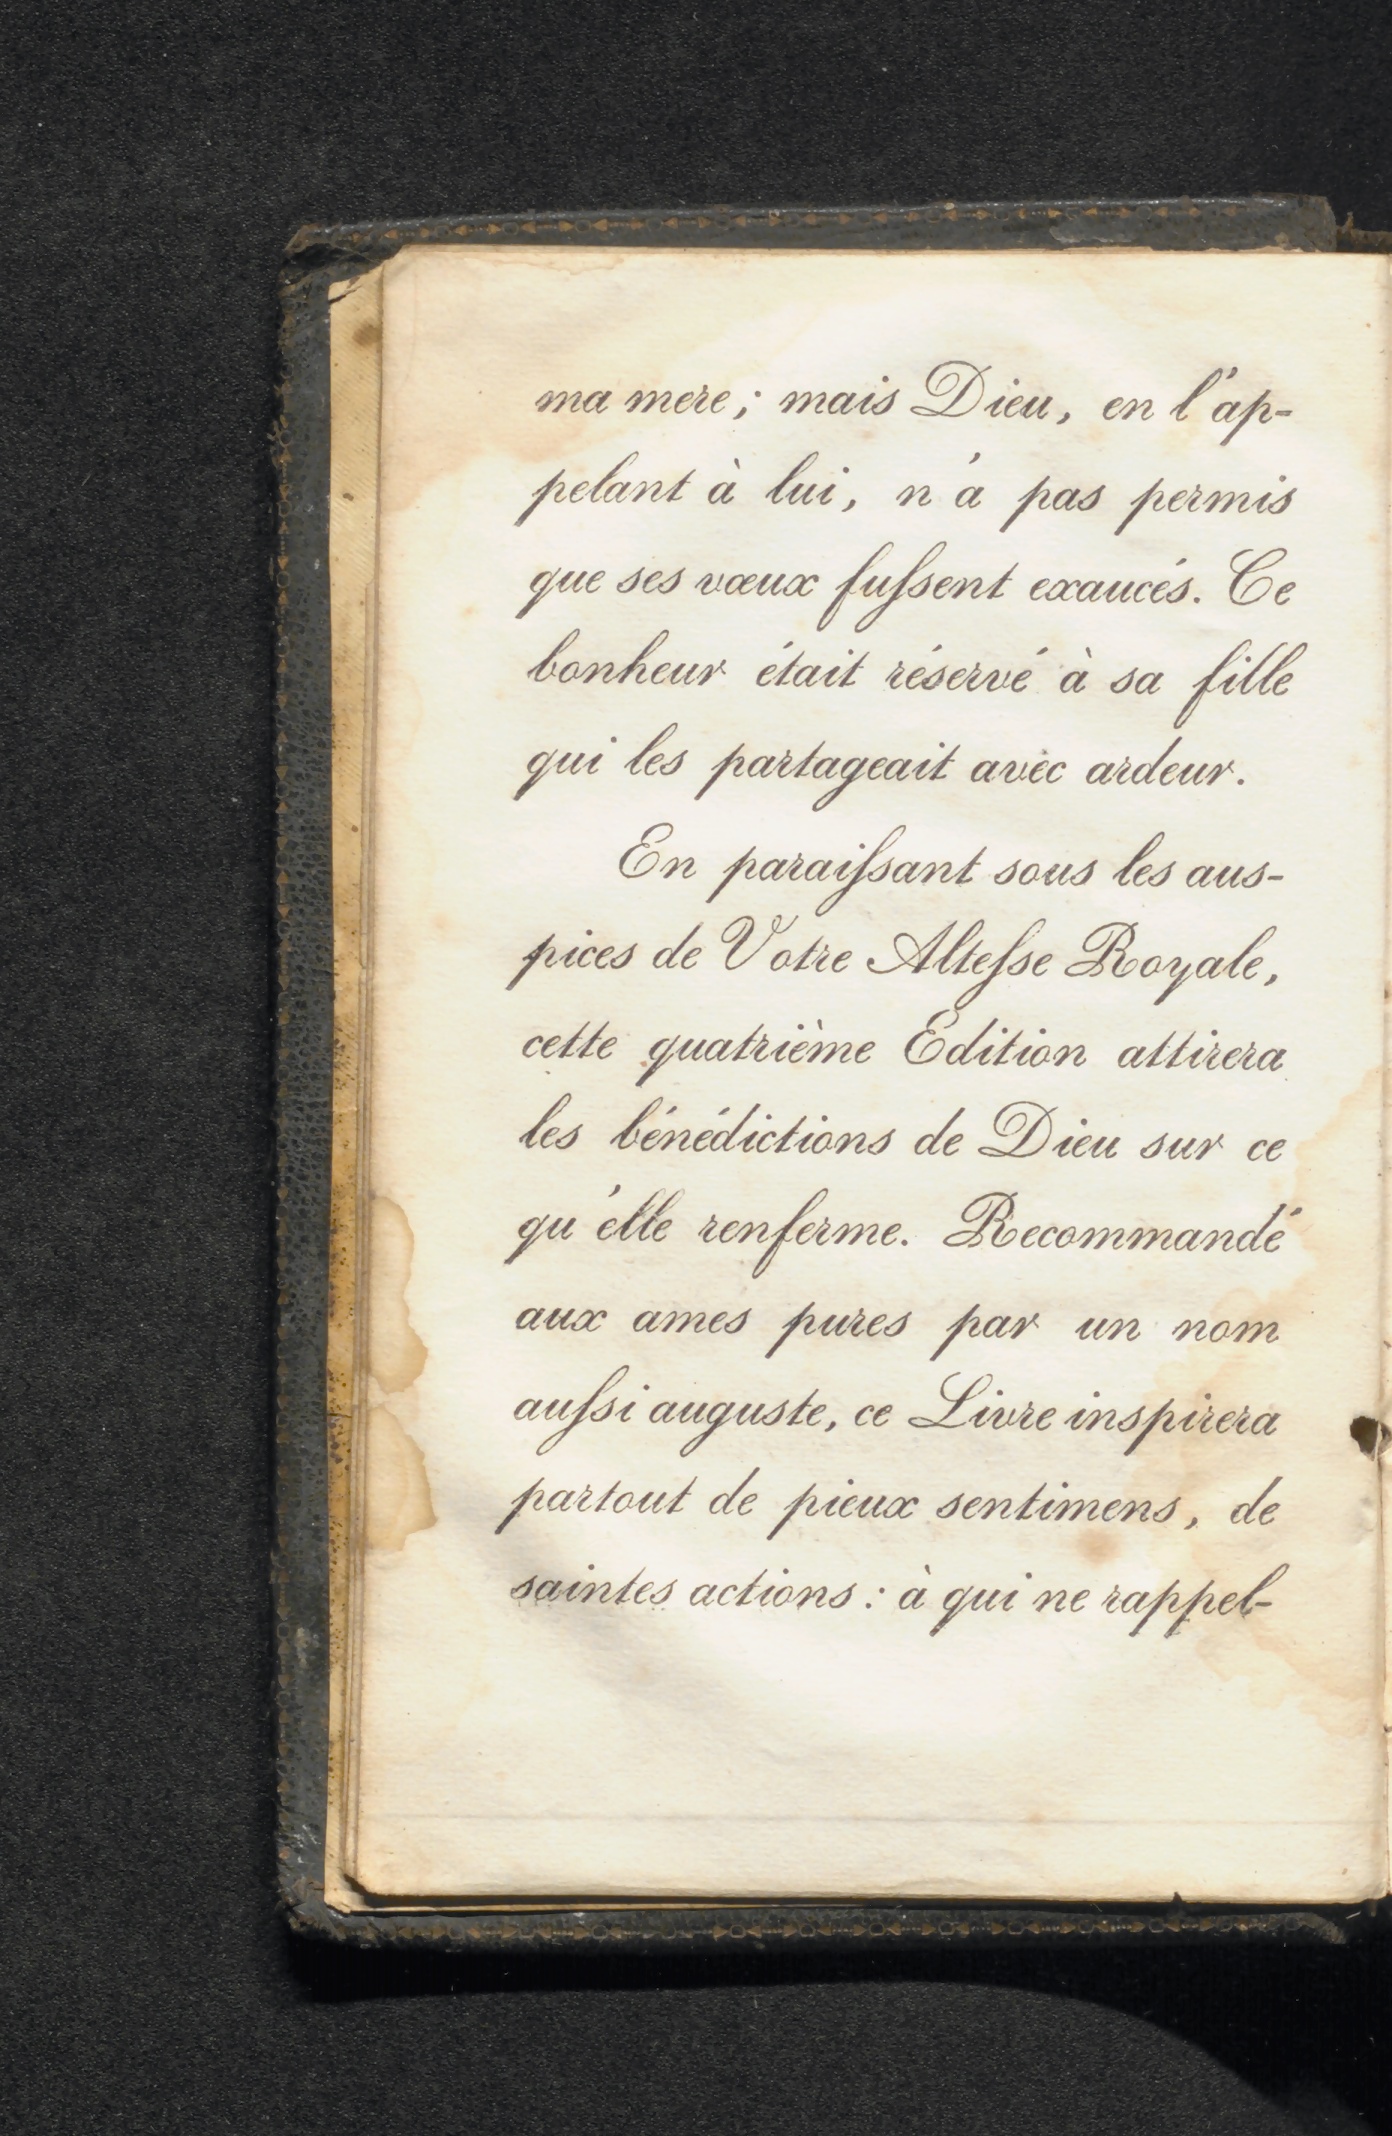 ma mere; mais Dieu, en l'ap-
pelant à lui, n'a pas permis
que ses vœux fuſsent exaucés. Ce
bonheur était réservé à sa fille
qui les partageait avec ardeur.
En paraiſsant sous les aus-
pices de Votre Alteſse Royale,
cette quatrième Edition attirera
les bénédictions de Dieu sur ce
qu'elle renferme. Recommandé
aux ames pures par un nom
auſsi auguste, ce Livre inspirera
partout de pieux sentimens, de
saintes actions: à qui ne rappel-